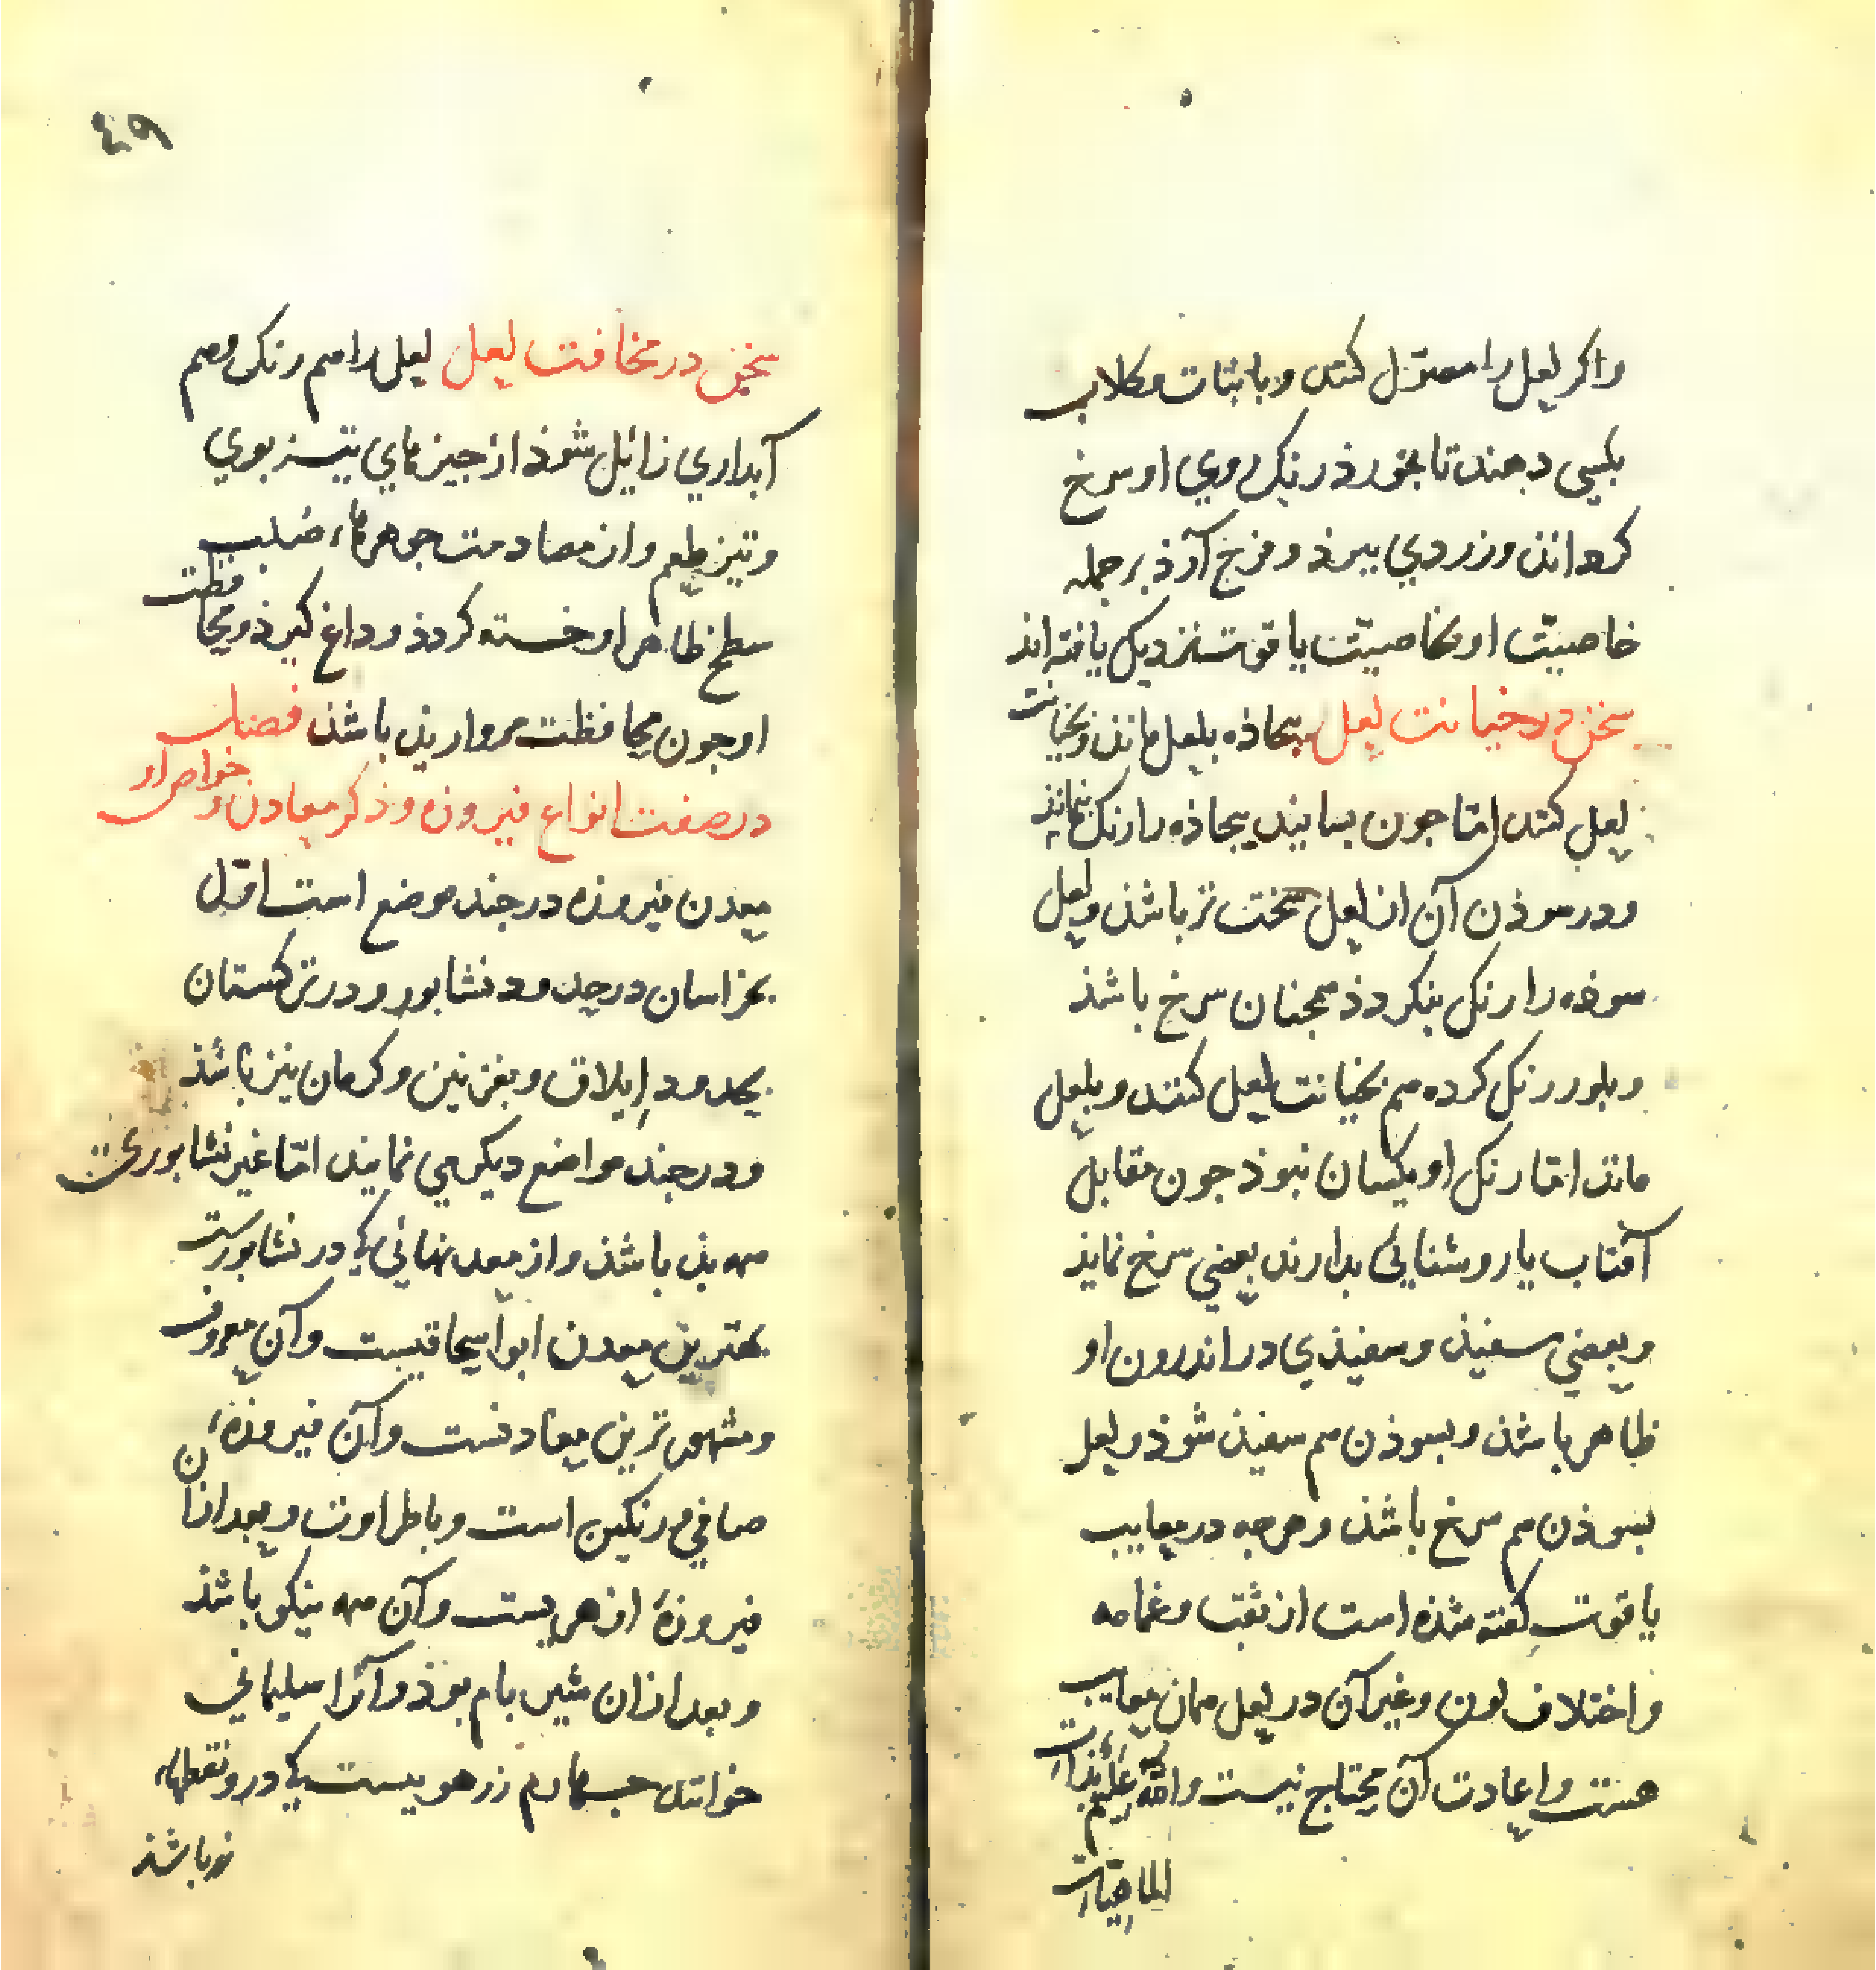 واکر لعل را محلول کنند و با نبات و کلاب
بکسی دهند تا بخورد رنک روی او سرخ
کرداند و زردی ببرد و فرح آرد بر جمله
خاصیت او بخاصیت یاقوت نزدیک یافته اند
سخن در خیانت لعل بیجاذه بلعل ماند و بخیانت
لعل کنند امّا جون بسایند بیجاذه را رنک نماند
و در سوذن آن از لعل سخت تر باشذ و لعل
سوذه را رنک بنکردذ همجنان سرخ باشذ
و بلور رنک کرده هم بخیانت لعل کنند و بلعل
ماند امّا رنک او یکسان نبوذ جون مقابل
آفتاب یا روشنایی بدارند بعضی سرخ نمایذ
و بعضی سفیذ و سفیذی در اندرون او
ظاهر باشذ و بسوذن هم سفیذ شوذ و لعل
بسوذن هم سرخ باشذ و هرجه در معایب
یاقوت کفته شذه است از ثقب و غمامه
و اختلاف لون و غیر آن در لعل همان معایب
هست و اعادت آن محتاج نیست والله اعلم بذات
الماهیات
٤٩
سخن در مخافت لعل لعل را هم رنک و هم
آبداری زائل شوذ از جیزهای تیز بوی
و تیز طعم و از مصادمت جوهرهاء صلب
سطح ظاهر او خسته کردذ و داغ کیرذ و محافظت
او جون محافظت مرواریذ باشذ فصل
در صفت انواع فیروزه و ذکر معادن و خواص او
معدن فیروزه در جند موضع است اوّل
بخراسان در حدود نشابور و در ترکستان
بحدود إیلاق و بغزنین و کرمان نیز باشذ
و در جند مواضع دیکر می نمایند امّا غیر نشابوری
همه بذ باشذ و از معدنهائی کی در نشابورست
بهترین معدن ابواسحاقیست و آن معروف
و مشهورترین معادنست و آن فیروزهٔ
صافی رنکین است و باطراوت و بعد از آن
فیروزهٔ ازهریست و آن همه نیکو باشذ
و بعد از آن شیربام بوذ و آنرا سلیمانی
خوانند جهارم زرهونیست کی درو نقطهاء
زر باشذ